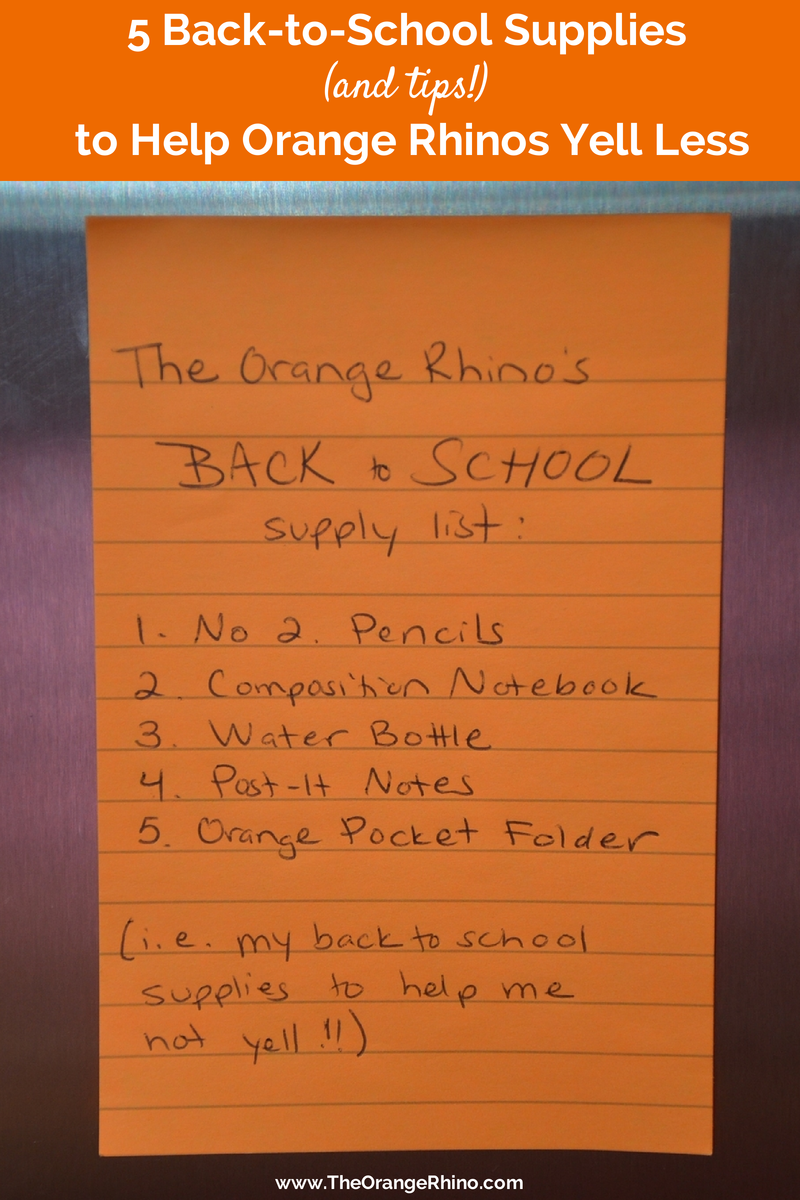 5 Back-to-School Supplies
(and tips!)
to Help Orange Rhinos Yell Less
The Orange Rhino's
BACK to SCHOOL
supply list:
1. No 2. Pencils
2. Composition Notebook
3. Water Bottle
4. Post-It Notes
5. Orange Pocket Folder
(i.e. my back to school
supplies to help me
not yell!!)
www.TheOrangeRhino.com